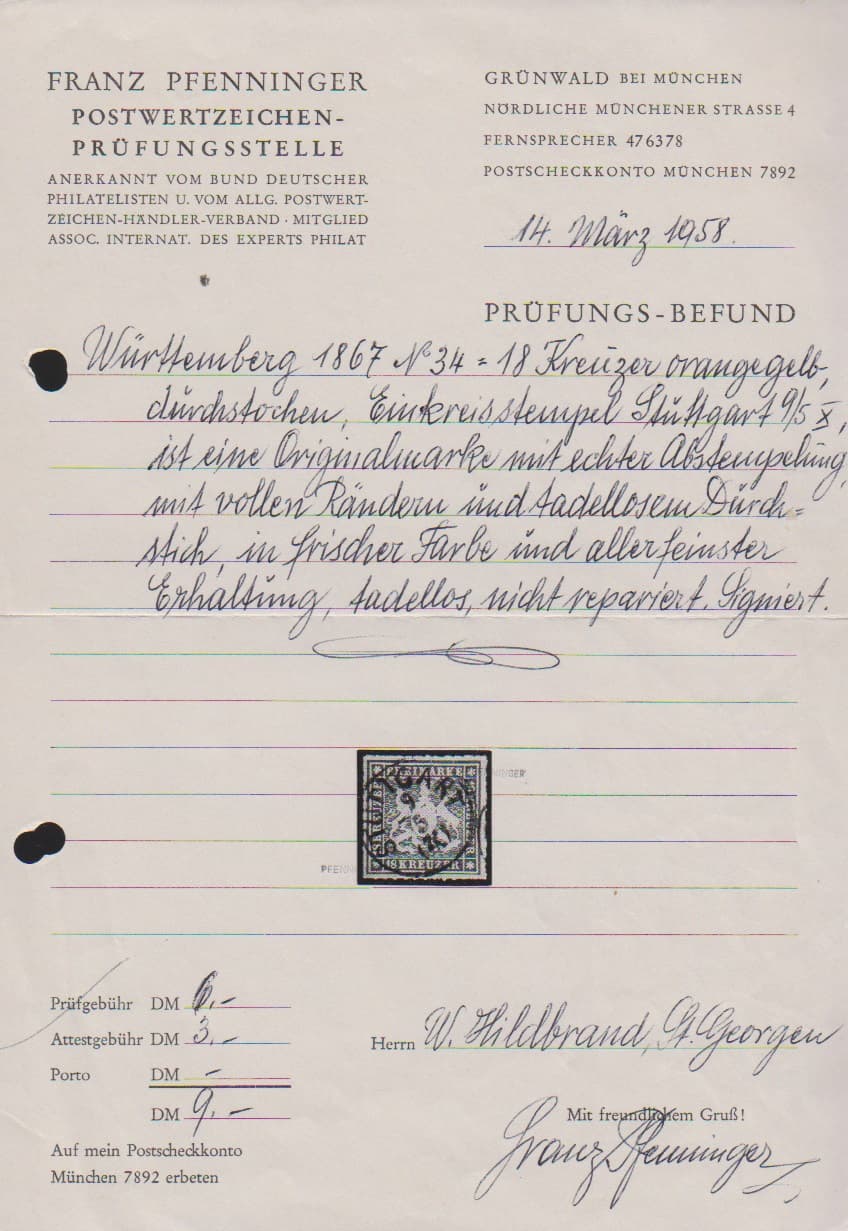 FRANZ PFENNINGER
POSTWERTZEICHEN-
PRÜFUNGSSTELLE
ANERKANNT VOM BUND DEUTSCHER
PHILATELISTEN U. VOM ALLG. POSTWERT-
ZEICHEN-HÄNDLER-VERBAND · MITGLIED
ASSOC. INTERNAT. DES EXPERTS PHILAT
GRÜNWALD BEI MÜNCHEN
NÖRDLICHE MÜNCHENER STRASSE 4
FERNSPRECHER 476378
POSTSCHECKKONTO MÜNCHEN 7892
14. März 1958.
PRÜFUNGS-BEFUND
Württemberg 1867 No 34 = 18 Kreuzer orangegelb,
durchstochen, Einkreisstempel Stuttgart 9/5 X,
ist eine Originalmarke mit echter Abstempelung,
mit vollen Rändern und tadellosem Durch=
stich, in frischer Farbe und allerfeinster
Erhaltung, tadellos, nicht repariert. Signiert.
FREIMARKE
STUTTGART
9
5
18 KREUZER
Prüfgebühr DM 6.-
Attestgebühr DM 3.-
Porto DM -
DM 9.-
Auf mein Postscheckkonto
München 7892 erbeten
Herrn W. Hildbrand, St. Georgen
Mit freundlichem Gruß!
Franz Pfenninger